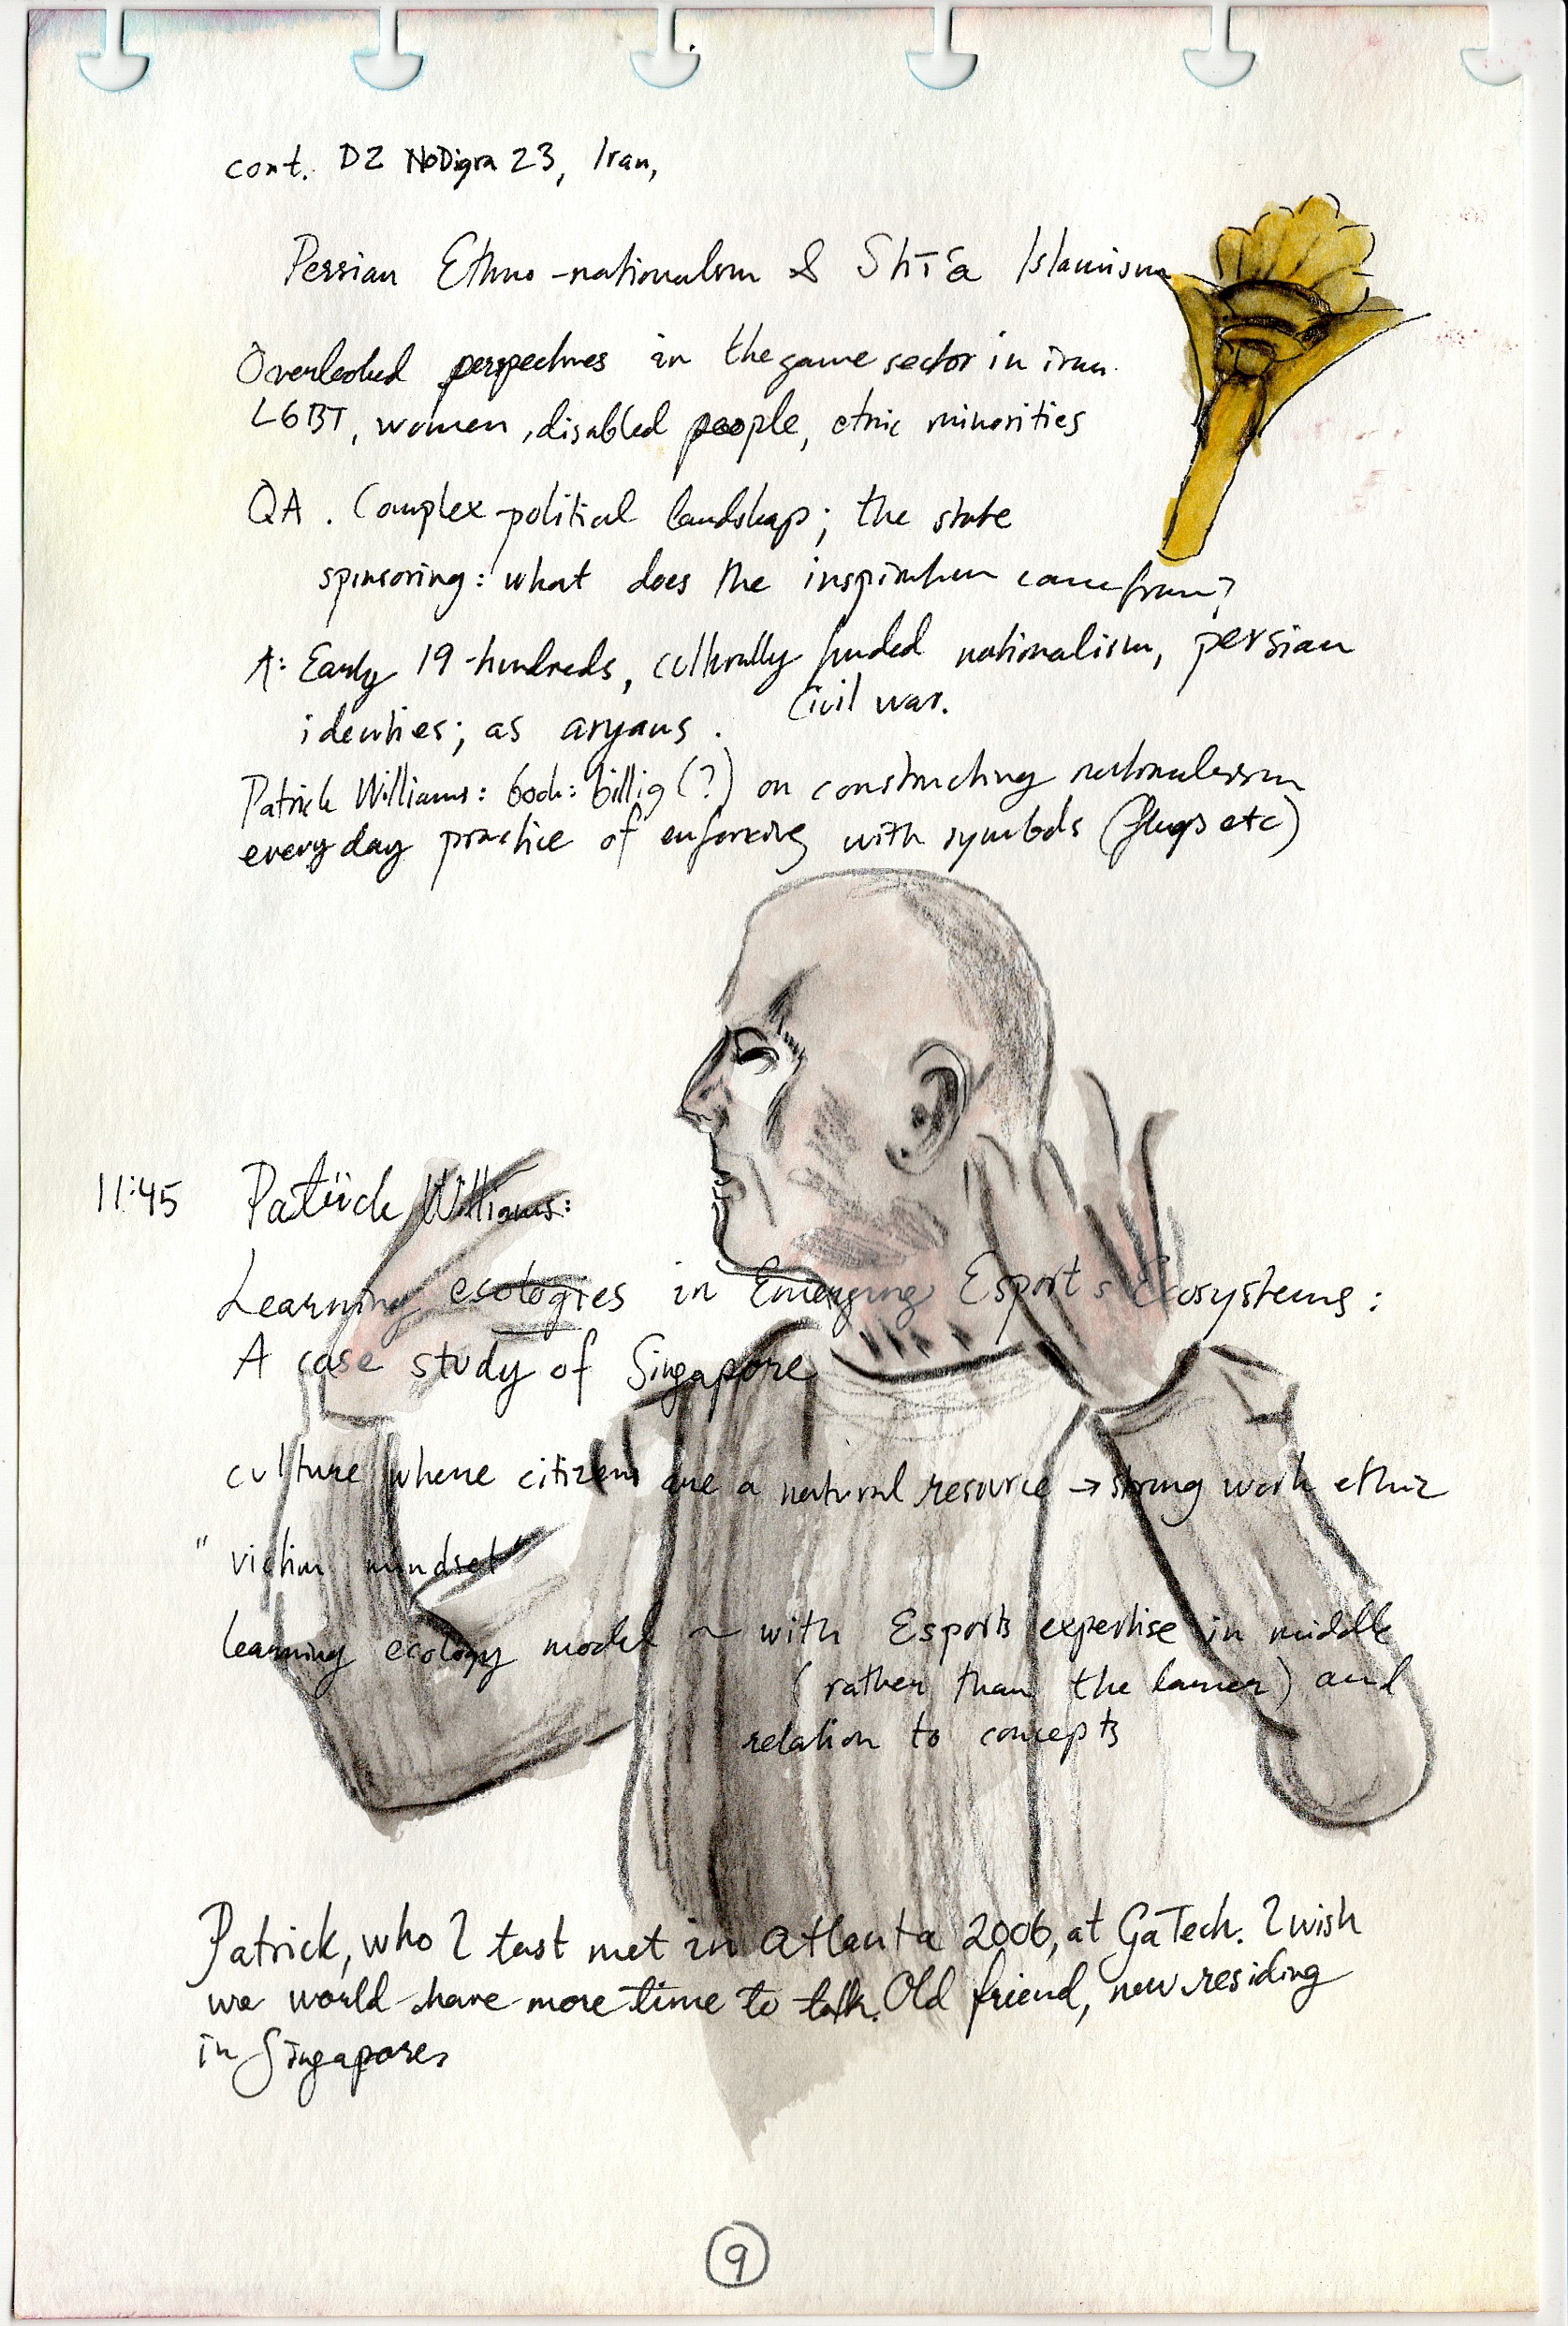 cont. D2 NoDigra 23, Iran,
Persian Ethno-nationalism & Shīʿa Islamism
Overlooked perspectives in the game sector in iran.
LGBT, women, disabled people, etnic minorities
QA. Complex political landskap; the state
sponsoring: what does the inspiration come from?
A: Early 19-hundreds, culturally funded nationalism, persian
identies; as aryans. Civil war.
Patrick Williams: book: billig (?) on constructing nationalism
every day practice of enforcing with symbols (flags etc)
11:45 Patrick Williams:
Learning ecologies in Emerging Esports Ecosystems:
A case study of Singapore
culture where citizens are a natural resource → strong work ethic
"victim mindset"
learning ecology model ~ with Esports expertise in middle
(rather than the learner) and
relation to concepts
Patrick, who I last met in Atlanta 2006, at GaTech. I wish
we would have more time to talk. Old friend, now residing
in Singapore
9